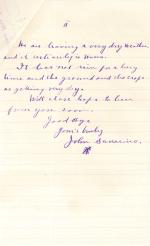 We are having a very dry weather
and it certainly is warm.
It has not rain for a long
time and the ground and the crops
is getting very dry.
Will close hope to hear
from you soon.
Good bye
Yours truly
John